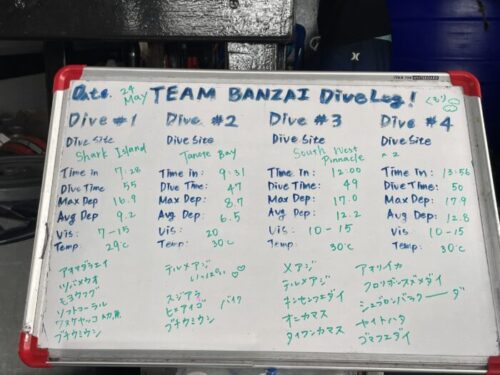 Date. 24 May TEAM BANZAI Dive Log! くもり
Dive #1 Dive #2 Dive #3 Dive #4
Dive Site Dive Site Dive Site Dive Site
Shark Island Tanote Bay South West Pinnacle "2
Time in : 7:28 Time in : 9:31 Time in : 12:00 Time in : 13:56
Dive Time : 55 Dive Time : 47 Dive Time : 49 Dive Time : 50
Max Dep : 16.9 Max Dep : 8.7 Max Dep : 17.0 Max Dep : 17.9
Avg Dep : 9.2 Avg Dep : 6.5 Avg Dep : 12.2 Avg Dep : 12.8
Vis : 7-15 Vis : 20 Vis : 10-15 Vis : 10-15
Temp : 29℃ Temp : 30℃ Temp : 30℃ Temp : 30℃
テルメアジ いっぱい メアジ アマリイカ
ツバメウオ テルメアジ
モヨウフグ スジアラ キンセンフエダイ
ソフトコーラル ヒメアイゴ バイク オニカマス ヤイトハタ
ブチウミウシ ブチウミウシ タイワンカマス ゴマフエダイ